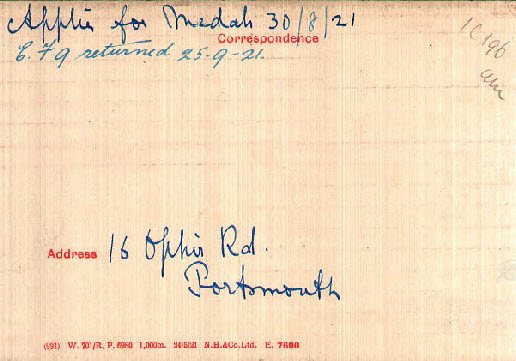 Applies for Medals 30/8/21
Correspondence
E. F 9 returned 25-9-21.
Address 16 Ophir Rd.
Portsmouth
W. P. 6980 1,000m. N.H.&Co.Ltd. E. 7600